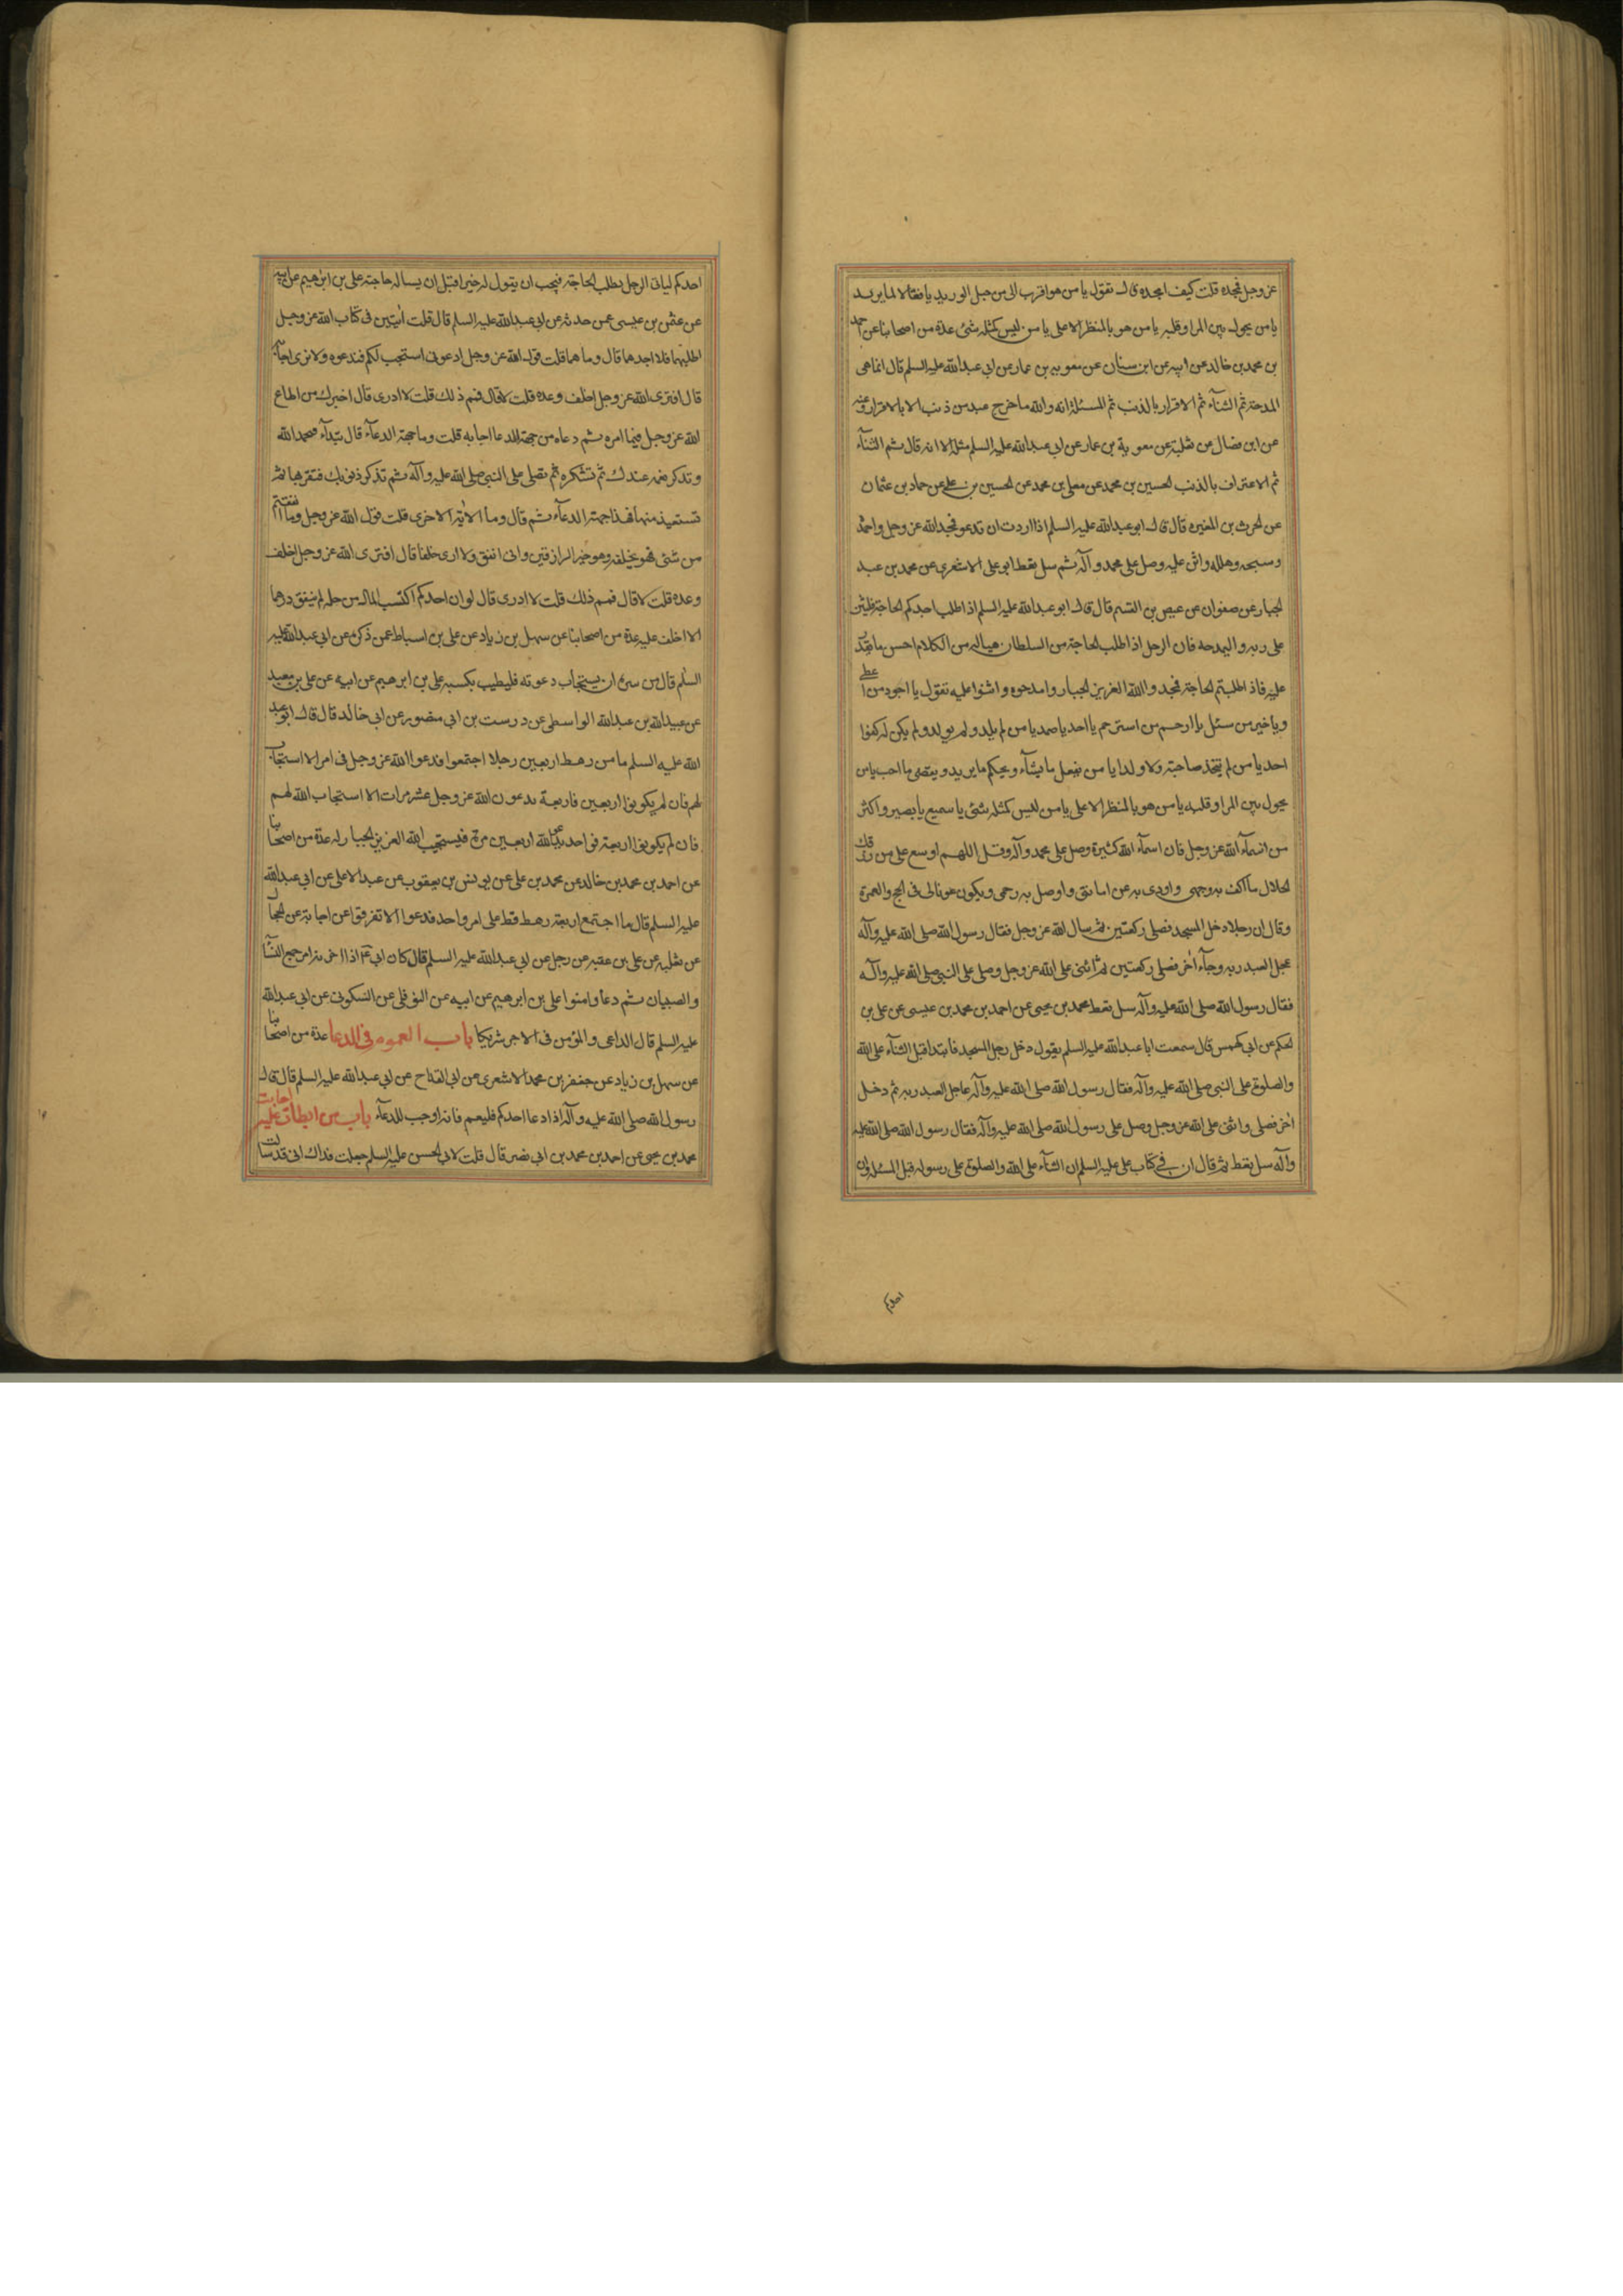 عز وجل فمجده قلت كيف امجده قال تقول يا من هو اقرب الى من حبل الوريد يا فعالا لما يريد
يا من يحول بين المرا وقلبه يا من هو بالمنظر الاعلى يا من ليس كمثله شئ عدة من اصحابنا عن احمد
بن محمد بن خالد عن ابيه عن ابن سنان عن معوية بن عمار عن ابي عبدالله عليه السلم قال انما هى
المدحة ثم الثناء ثم الاقرار بالذنب ثم المسئلة انه والله ما خرج عبد من ذنب الا بالاقرار وعنه
عن ابن فضال عن ثعلبة عن معوية بن عمار عن ابي عبدالله عليه السلم مثله الا انه قال ثم الثناء
ثم الاعتراف بالذنب الحسين بن محمد عن معلى بن محمد عن الحسين بن على عن حماد بن عثمان
عن الحرث بن المغيره قال قال ابو عبدالله عليه السلم اذا اردت ان تدعو فمجد الله عز وجل واحمده
وسبحه وهلله واثن عليه وصل على محمد وآله ثم سل تعط ابو على الاشعرى عن محمد بن عبد
الجبار عن صفوان عن عيص بن القسم قال قال ابو عبدالله عليه السلم اذا طلب احدكم الحاجة فليثن
على ربه واليمدحه فان الرجل اذا طلب الحاجة من السلطان هيا له من الكلام احسن ما يقدر
عليه فاذا طلبتم الحاجة فمجدوا الله العزيز الجبار وامدحوه واثنوا عليه تقول يا اجود من اعطى
ويا خير من سئل يا ارحم من استرحم يا احد يا صمد يا من لم يلد ولم يولد ولم يكن له كفوا
احد يا من لم يتخذ صاحبة ولا ولدا يا من يفعل ما يشاء ويحكم ما يريد ويقضى ما احب يا من
يحول بين المرا وقلبه يا من هو بالمنظر الاعلى يا من ليس كمثله شئ يا سميع يا بصير واكثر
من اسماء الله عز وجل فان اسماء الله كثيرة وصل على محمد وآله وقل اللهم اوسع على من رزقك
الحلال ما اكف به وجهى واودى به عن امانتى واوصل به رحمى ويكون عونا لى فى الحج والعمرة
وقال ان رجلا دخل المسجد فصلى ركعتين ثم سال الله عز وجل فقال رسول الله صلى الله عليه وآله
عجل العبد ربه وجاء آخر فصلى ركعتين ثم اثنى على الله عز وجل وصلى على النبى صلى الله عليه وآله
فقال رسول الله صلى الله عليه وآله سل تعط محمد بن يحيى عن احمد بن محمد بن عيسى عن على بن
الحكم عن ابى كهمس قال سمعت ابا عبدالله عليه السلم يقول دخل رجل المسجد فابتدا قبل الثناء على الله
والصلوة على النبى صلى الله عليه وآله فقال رسول الله صلى الله عليه وآله عاجل العبد ربه ثم دخل
آخر فصلى واثنى على الله عز وجل وصل على رسول الله صلى الله عليه وآله فقال رسول الله صلى الله عليه
وآله سل تعط ثم قال ان فى كتاب على عليه السلم ان الثناء على الله والصلوة على رسوله قبل المسئلة وان
احدكم
احدكم لياتى الرجل يطلب الحاجة فيحب ان يقول له خيرا قبل ان يساله حاجته على بن ابرهيم عن ابيه
عن عثمن بن عيسى عمن حدثه عن ابي عبدالله عليه السلم قال قلت آيتين فى كتاب الله عز وجل
اطلبهما فلا اجدهما قال وما هما قلت قول الله عز وجل ادعونى استجب لكم فندعوه ولا نرى اجابة
قال افترى الله عز وجل اخلف وعده قلت لا قال فمم ذلك قلت لا ادرى قال اخبرك من اطاع
الله عز وجل فيما امره ثم دعاه من جهة الدعا اجابه قلت وما جهة الدعاء قال تبداء فتحمد الله
وتذكر نعمه عندك ثم تشكره ثم تصلى على النبى صلى الله عليه وآله ثم تذكر ذنوبك فتقر بها ثم
تستعيذ منها فهذا جهة الدعاء ثم قال وما الاية الاخرى قلت قول الله عز وجل وما انفقتم
من شئ فهو يخلفه وهو خير الرازقين وانى انفق ولا ارى خلفا قال افترى الله عز وجل اخلف
وعده قلت لا قال فمم ذلك قلت لا ادرى قال لو ان احدكم اكتسب المال من حله لم ينفق درهما
الا اخلف عليه عدة من اصحابنا عن سهل بن زياد عن على بن اسباط عمن ذكره عن ابى عبدالله عليه
السلم قال من سره ان يستجاب دعوته فليطيب بكسبه على بن ابرهيم عن ابيه عن على بن معبد
عن عبيدالله بن عبدالله الواسطى عن درست بن ابى منصور عن ابى خالد قال قال ابو عبد
الله عليه السلم ما من رهط اربعين رجلا اجتمعوا فدعوا الله عز وجل فى امر الا استجاب
لهم فان لم يكونوا اربعين فاربعة يدعون الله عز وجل عشر مرات الا استجاب الله لهم
فان لم يكونوا اربعة فواحد يدعو الله اربعين مرة فيستجيب الله العزيز الجبار له عدة من اصحابنا
عن احمد بن محمد بن خالد عن محمد بن على عن يونس بن يعقوب عن عبدالاعلى عن ابى عبدالله
عليه السلم قال ما اجتمع اربعة رهط قط على امر واحد فدعوا الا تفرقوا عن اجابة عن الحجال
عن ثعلبه عن على بن عقبه عن رجل عن ابى عبدالله عليه السلم قال كان ابى ع اذا احزنه امر جمع النسآ
والصبيان ثم دعا وامنوا على بن ابرهيم عن ابيه عن النوفلى عن السكونى عن ابى عبدالله
عليه السلم قال الداعى والمؤمن فى الاجر شريكا باب العموم فى الدعا عدة من اصحابنا
عن سهل بن زياد عن جعفر بن محمد الاشعرى عن ابى القداح عن ابى عبدالله عليه السلم قال قال
رسول الله صلى الله عليه وآله اذا دعا احدكم فليعم فانه اوجب للدعاء باب من ابطات عليه اجابت
محمد بن يحيى عن احمد بن محمد بن ابى نصر قال قلت لابى الحسن عليه السلم جعلت فداك انى قد سالت